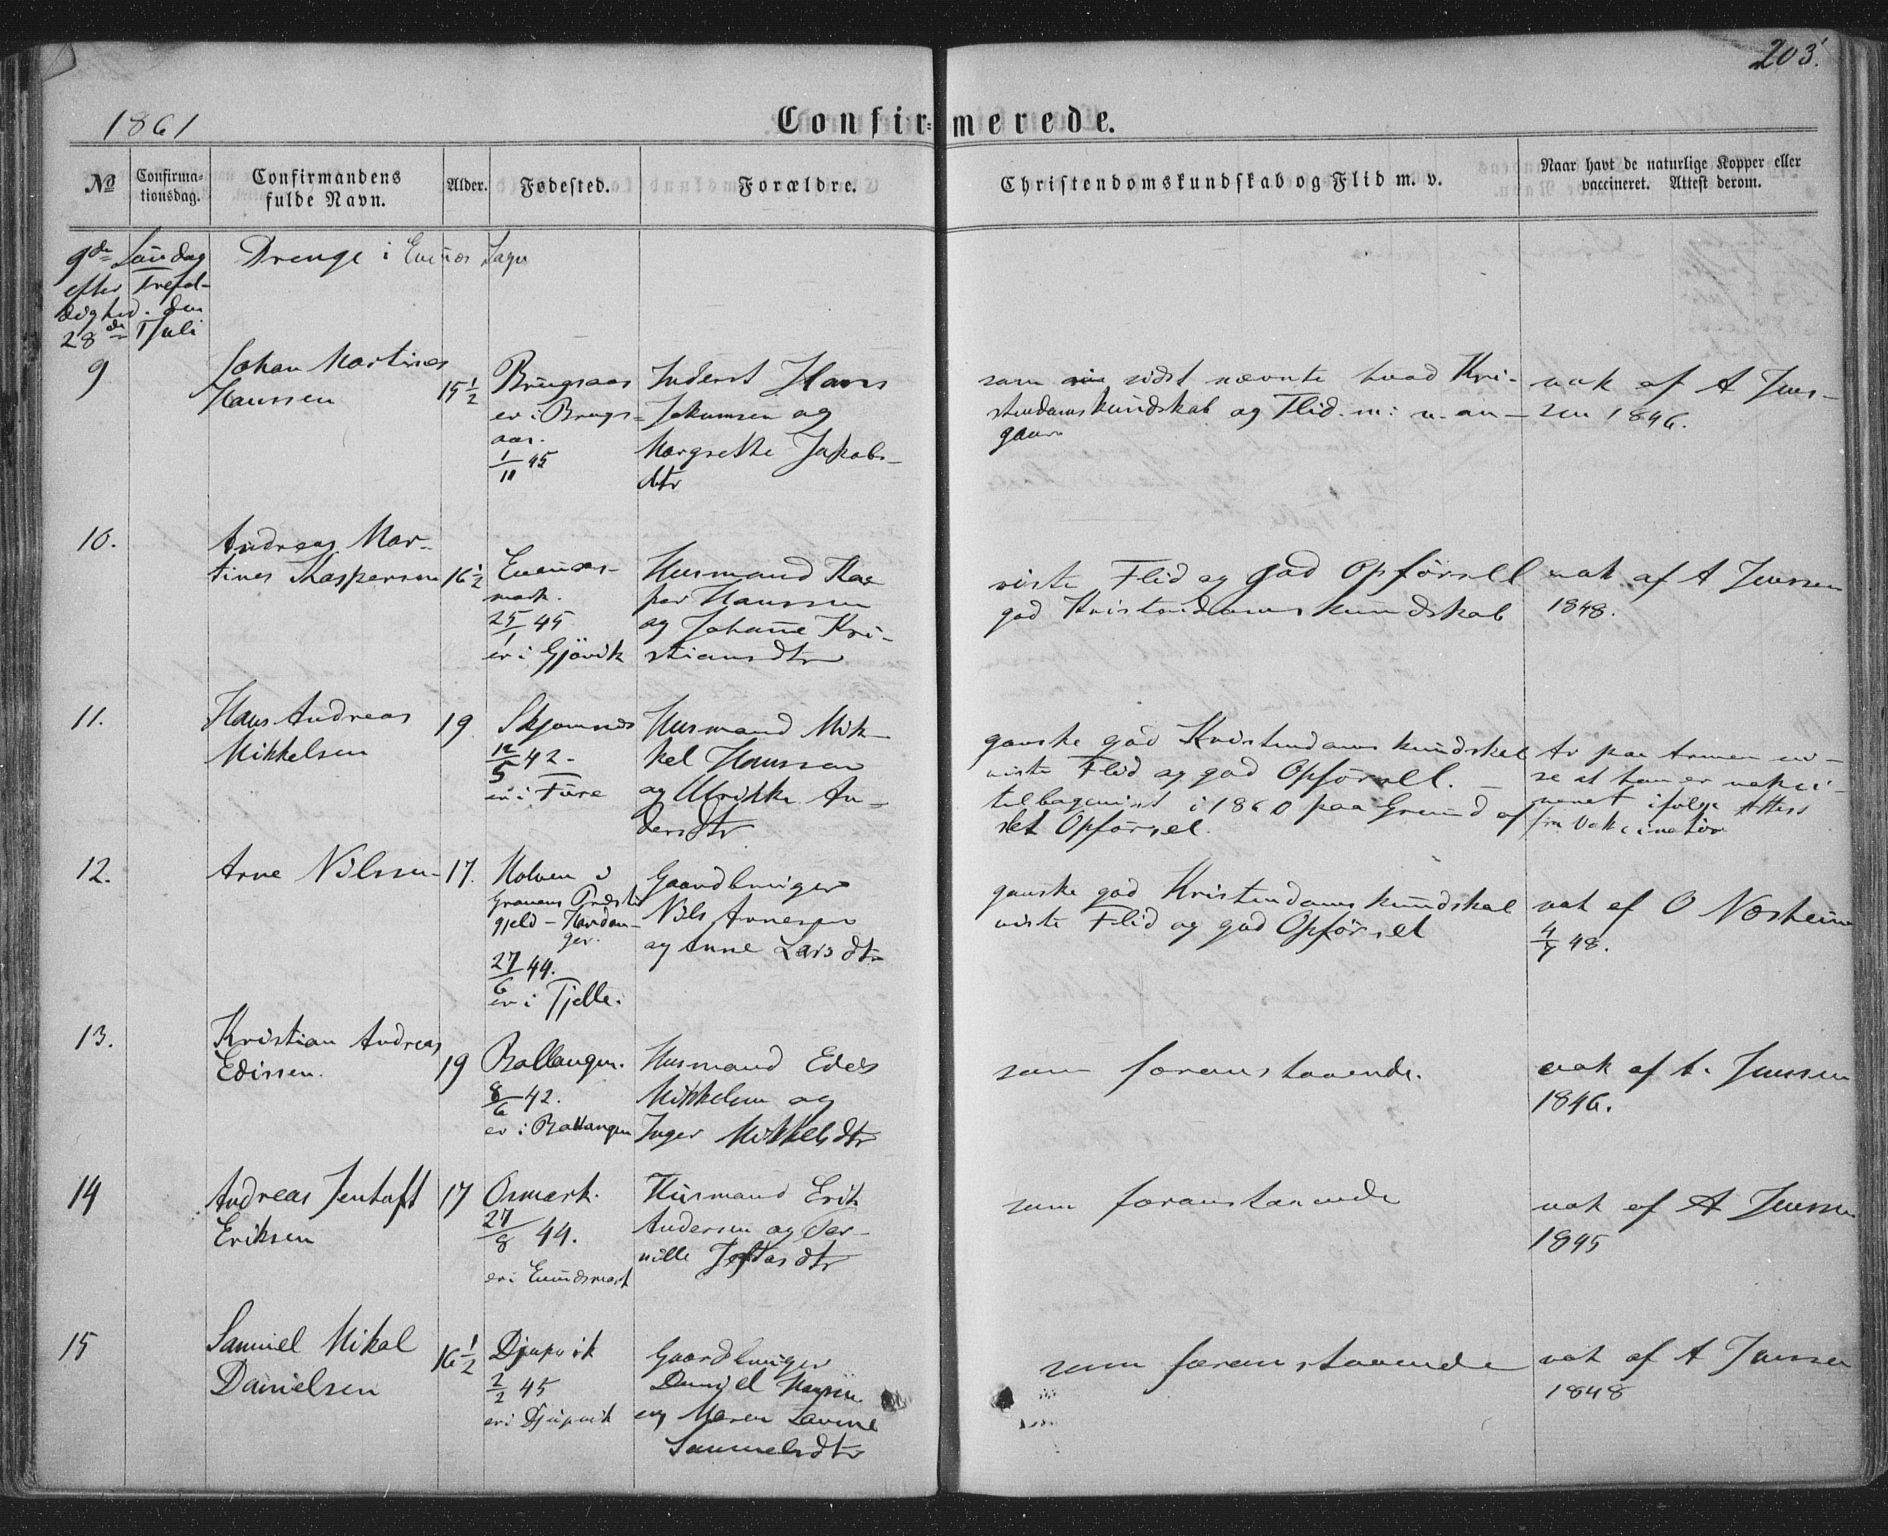 203.
1861
Confirmerede.
No
Confirmationsdag.
Confirmandens fulde Navn.
Alder.
Fødested.
Forældre.
Christendomskundskab og Flid m. v.
Naar havt de naturlige Kopper eller vaccineret. Attest derom.
9de Søndag
efter Trefol-
dighed. den
28de Juli
Drenge i Evenæs Sogn
9
Johan Martines
Hanssen
15 1/2
Brugsaas
er i Brugs-
aas.
1/11 45
Inderst Hans
Jokumsen og
Margrethe Jakobs-
dtr
som sidst nævnte hvad Kri-
stendomskundskab og Flid. m: v. an-
gaar
vak af A Jens-
sen 1846.
10.
Andreas Mar-
tines Kaspersen
16 1/2
Evenæs-
mark.
25/1 45
er i Gjövik
Husmand Kas
per Hanssen
og Johanne Kri-
stiansdtr
viste Flid og god Opførsell
god Kristendomskundskab
vak. af A Jenssen
1848.
11.
Hans Andreas
Mikkelsen
19
Skjomnes
12/5 42 -
er i Füre
Husmand Mik-
kel Hanssen
og Ulrikke An-
dersdtr
ganske god Kristendomskundskab
viste Flid og god Opførsell. -
tilbagevist i 1860 paa Grund af
slet Opførsel.
Ar paa Armen vi-
se at han er vakci-
neret ifølge Attest
fra Vakcinatør
12.
Arne Nilssen
17.
Holven i
Gravens Præste
gjeld - Hardan-
ger.
27/6 44.
er i Tjelle.
Gaardbruger
Nils Arnesen
og Anne Larsdtr
ganske god Kristendomskundskab
viste Flid og god Opførsel
vak af O Næsheim
4/7 48.
13.
Kristian Andreas
Edissen.
19
Ballangen.
8/6 42.
er i Ballangen
Husmand Edis
Mikkelsen og
Inger Mikkelsdtr
som foranstaaende.
vak af A. Jenssen
1846.
14
Andreas Jentoft
Eriksen
17
Osmark.
27/8 44.
er i Evenæsmark
Husmand Erik
Andersen og Per-
nille Jeftasdtr
som foranstaaende
vak af A Jenssen
1845
15
Samuel Mikal
Danielsen
16 1/2
Djupvik
2/2 45
er i Djupvik
Gaardbruger
Daniel Hanssen
og Maren Lavine
Samuelsdtr
som foranstaaende
vak af A Jenssen
1848